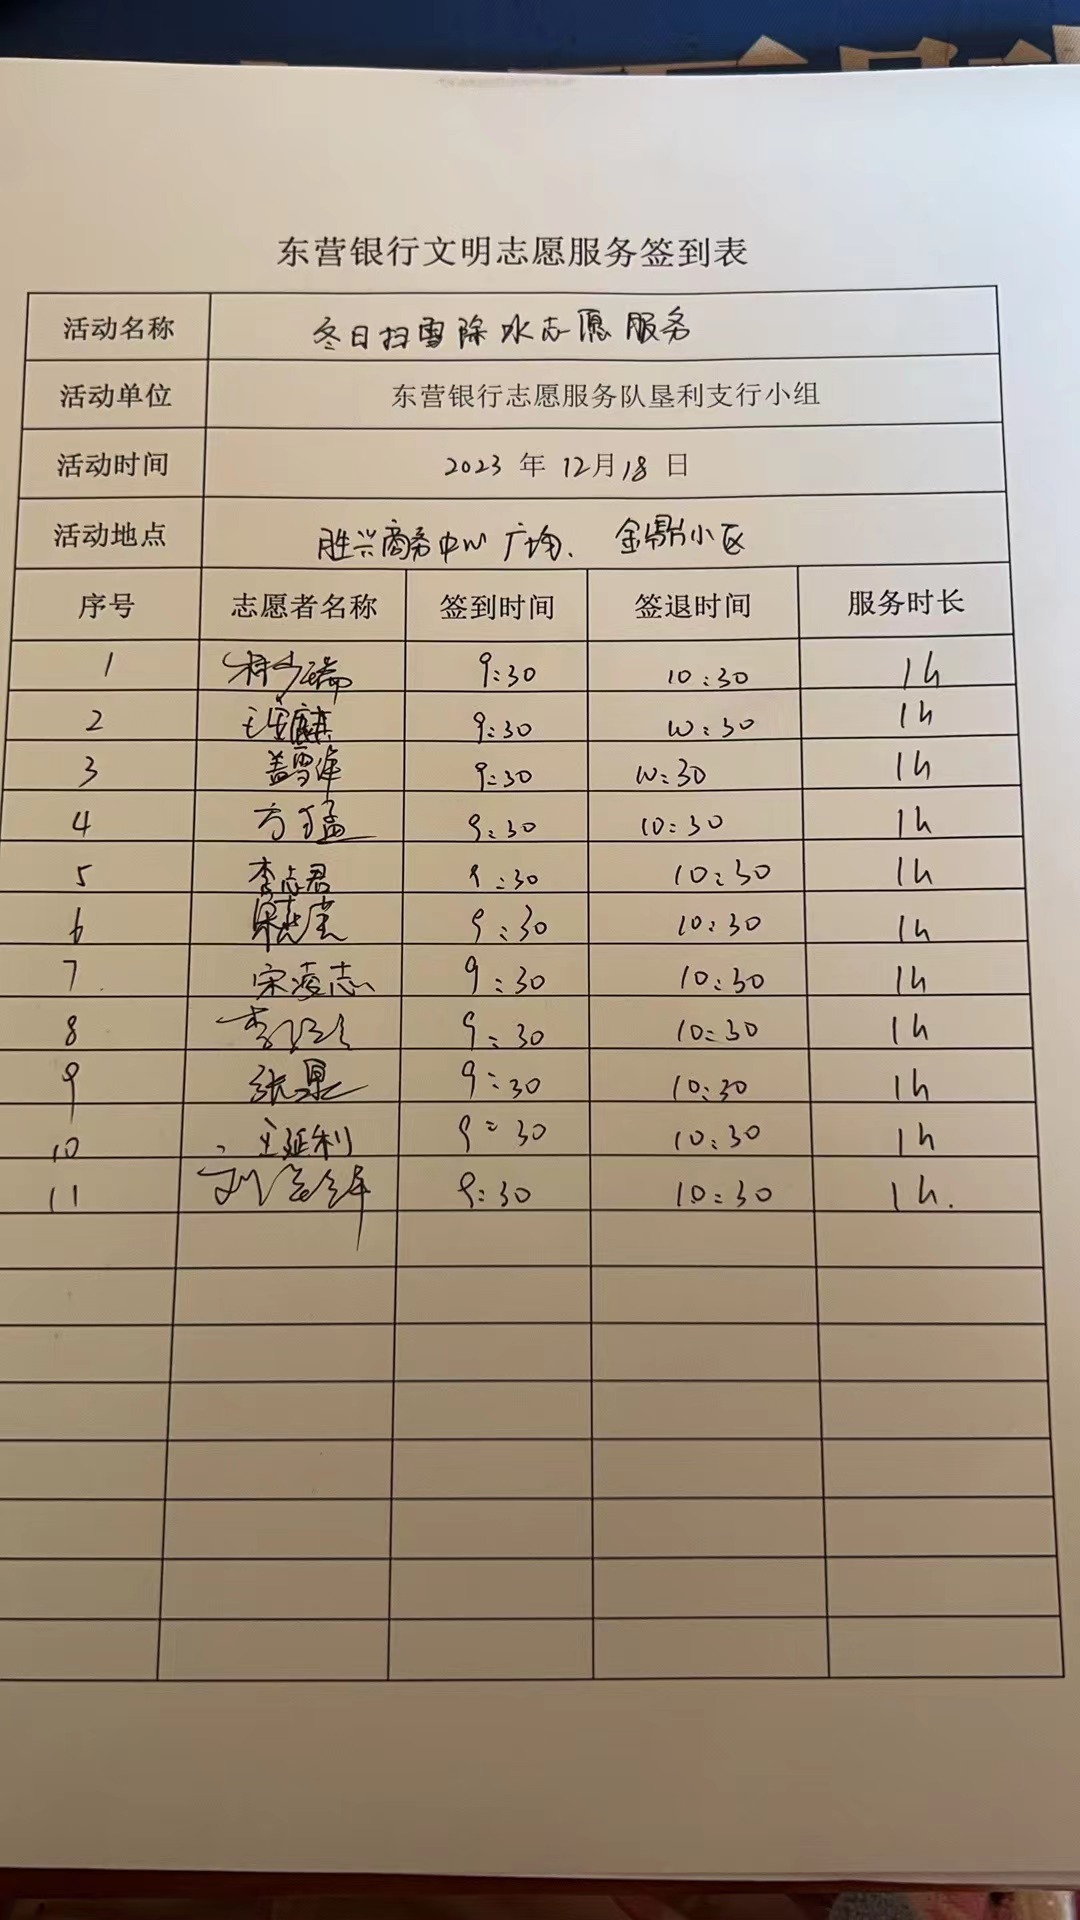 东营银行文明志愿服务签到表
活动名称 冬日扫雪除冰志愿服务
活动单位 东营银行志愿服务队垦利支行小组
活动时间 2023 年 12月18 日
活动地点 胜兴商务中心广场、金鼎小区
序号 志愿者名称 签到时间 签退时间 服务时长
1 9:30 10:30 1h
2 9:30 10:30 1h
3 盖雪 9:30 10:30 1h
4 方猛 9:30 10:30 1h
5 李志君 9:30 10:30 1h
6 9:30 10:30 1h
7 宋凌志 9:30 10:30 1h
8 李 9:30 10:30 1h
9 张 9:30 10:30 1h
10 王延利 9:30 10:30 1h
11 刘 9:30 10:30 1h.